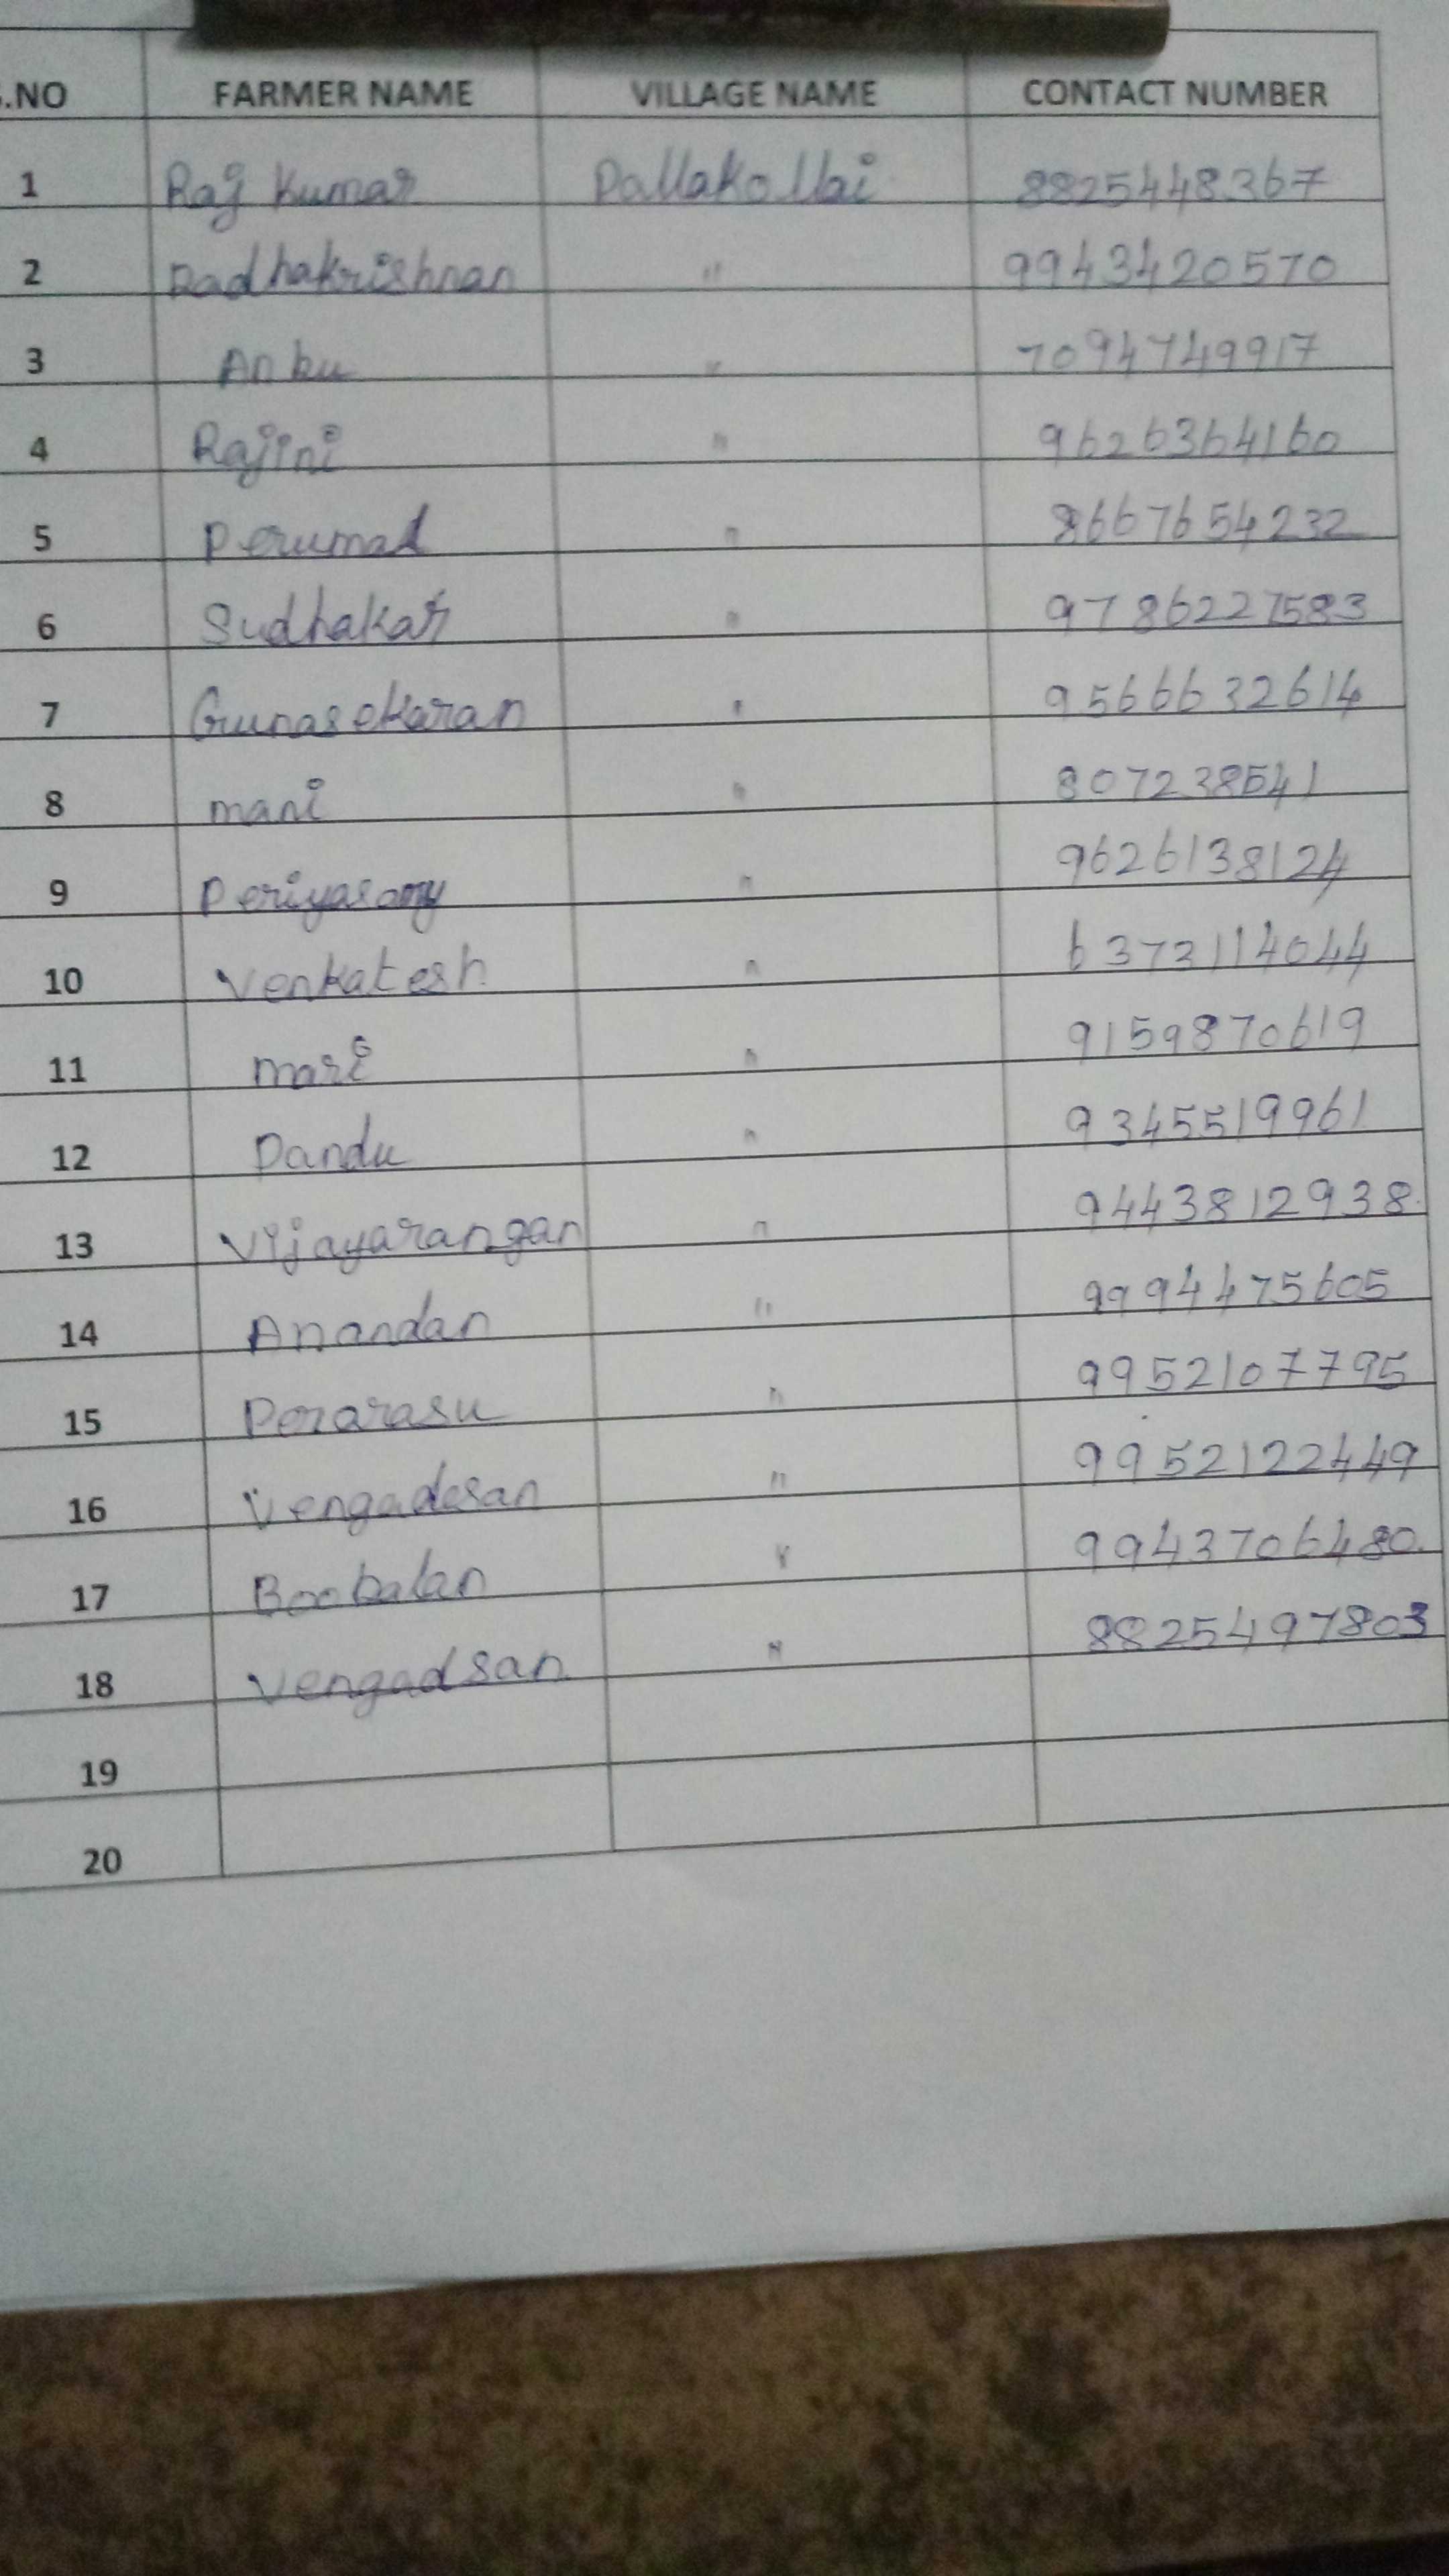 .NO FARMER NAME VILLAGE NAME CONTACT NUMBER
1 Raj Kumar Pallakollai 8825448367
2 Radhakrishnan " 9943420570
3 Anbu " 7094749917
4 Rajini " 9626364160
5 Perumal " 8667654232
6 Sudhakar " 9786227583
7 Gunasekaran " 9566632614
8 mani " 807238541
9 Periyasamy " 9626138124
10 Venkatesh " 6373114044
11 mari " 9159870619
12 Pandu " 9345519961
13 Vijayarangan " 9443812938
14 Anandan " 9994475605
15 Perarasu " 9952107795
16 Vengadesan " 9952122449
17 Boobalan " 9943706480
18 Vengadsan " 8825497803
19
20